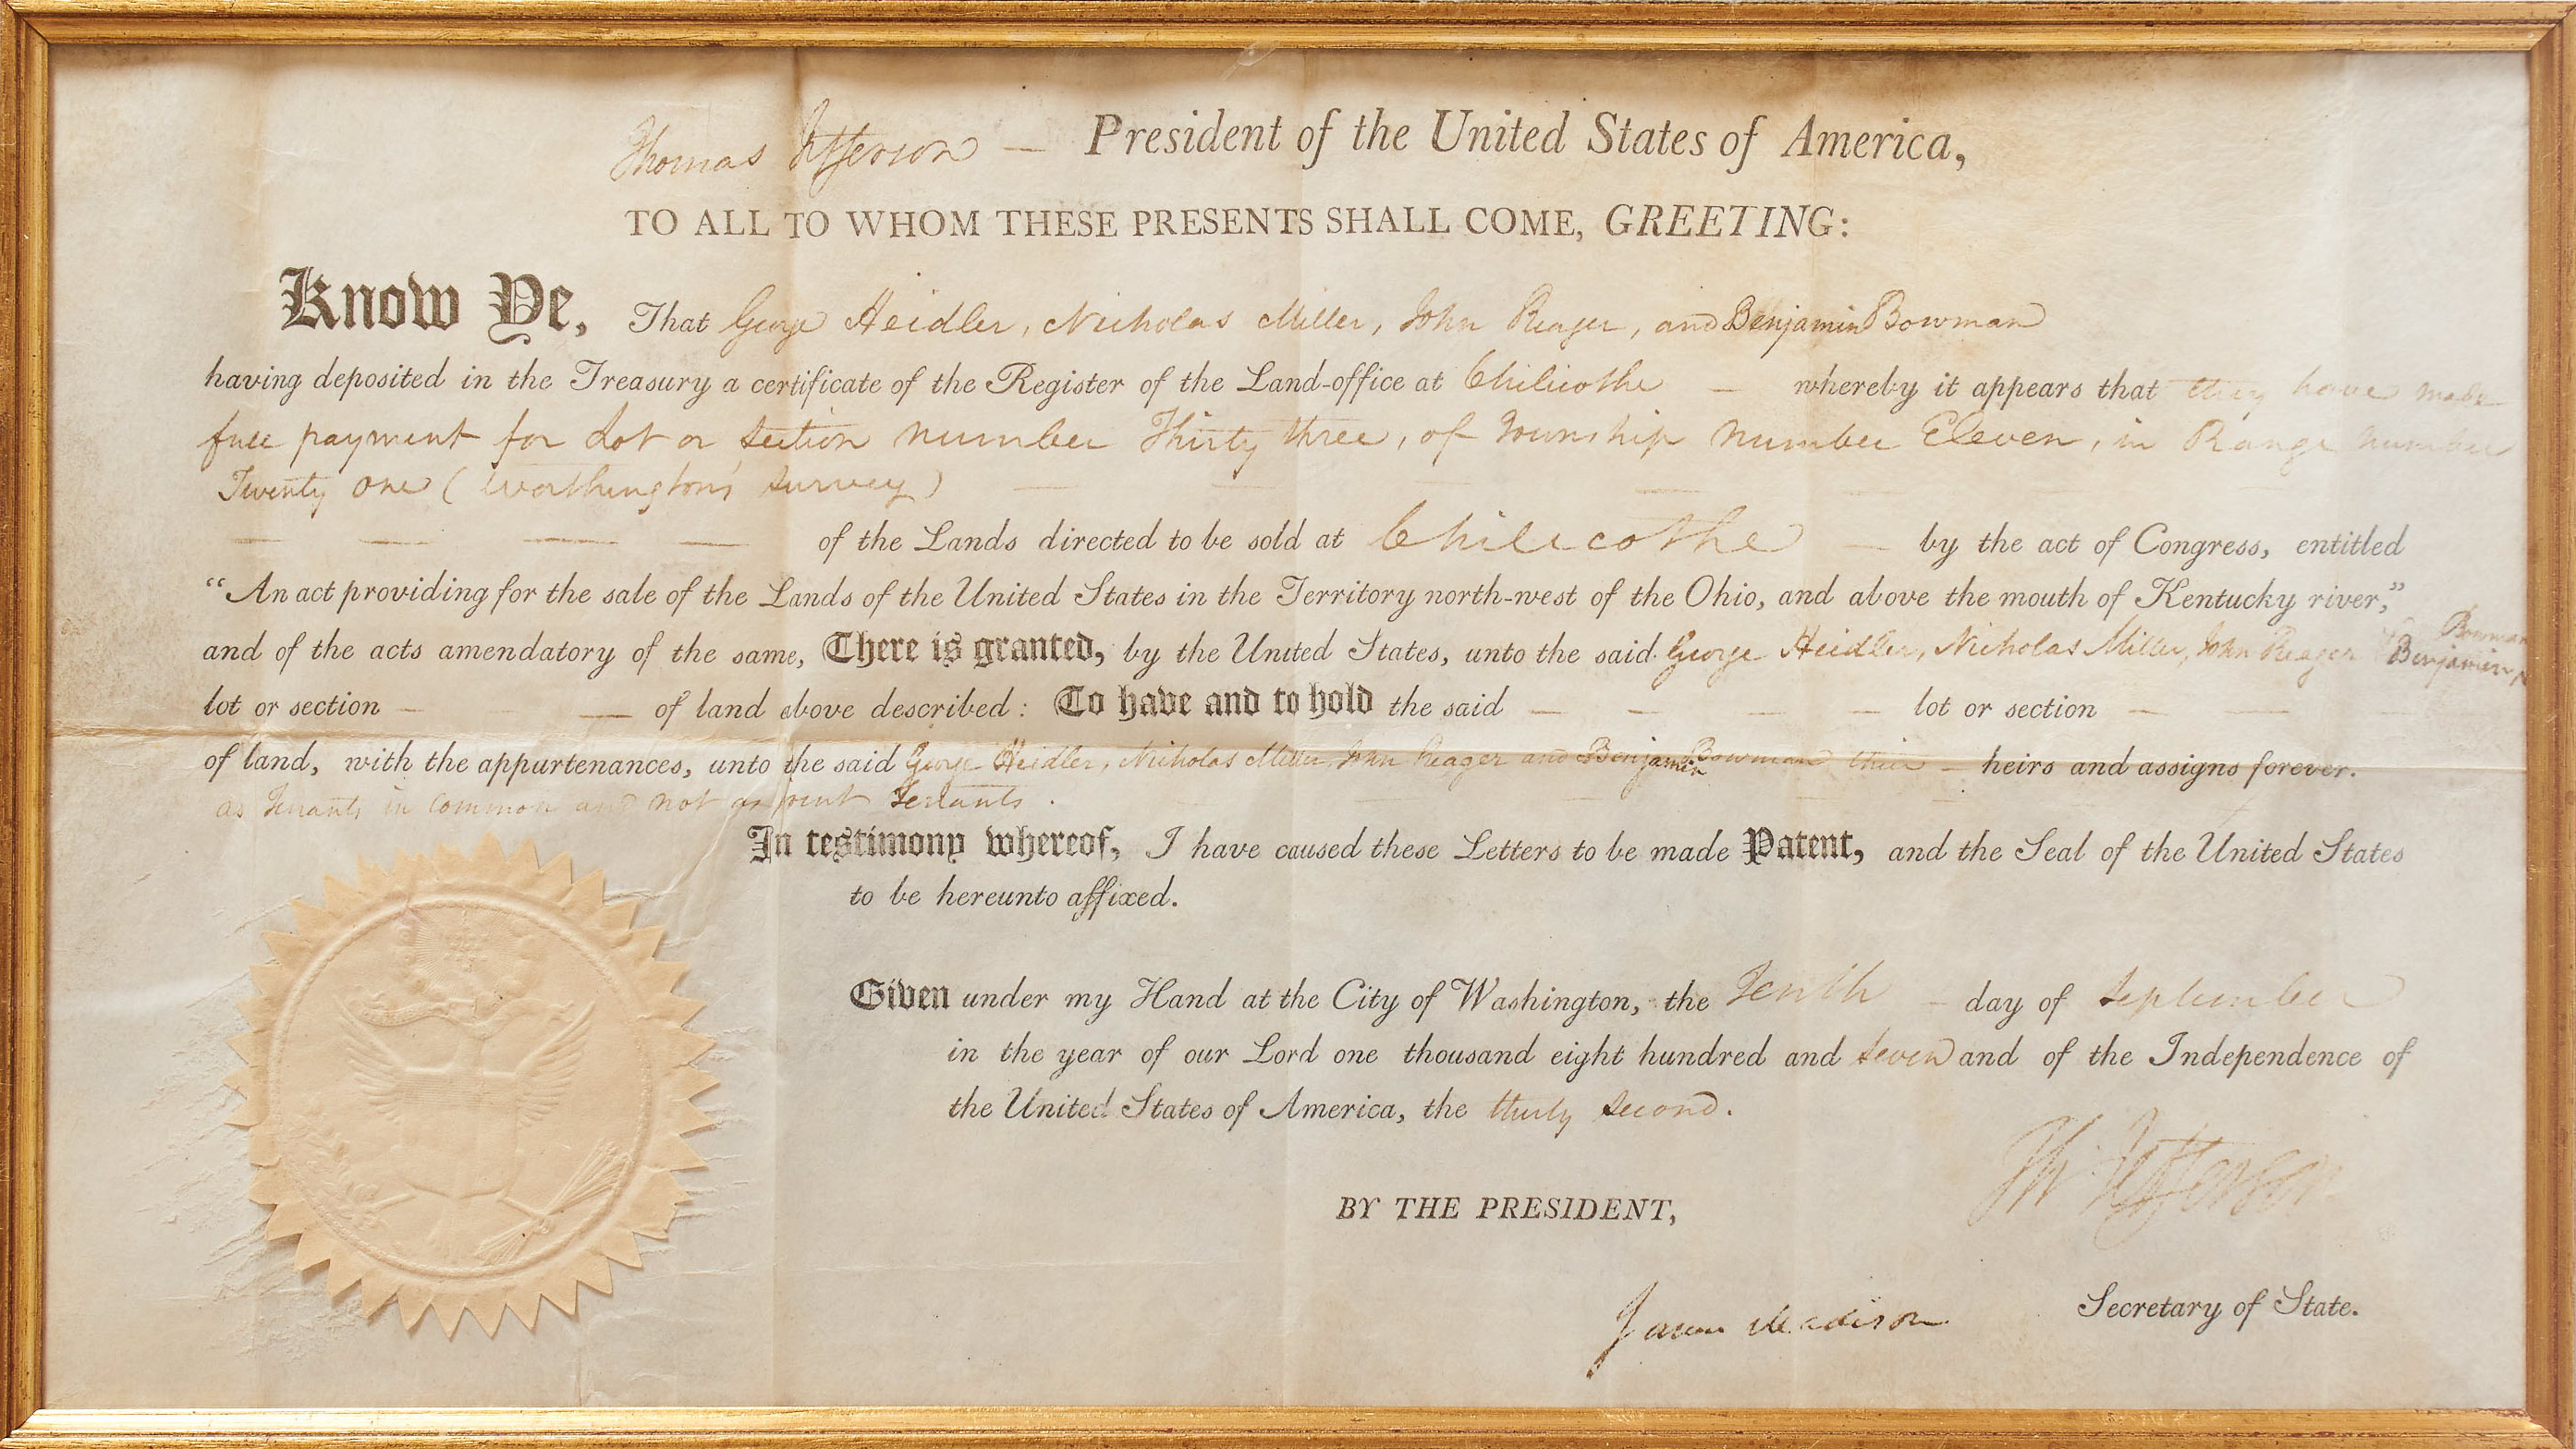 Thomas Jefferson — President of the United States of America,
TO ALL TO WHOM THESE PRESENTS SHALL COME, GREETING:
Know Ye, That George Heidler, Nicholas Miller, John Reager, and Benjamin Bowman
having deposited in the Treasury a certificate of the Register of the Land-office at Chilicothe — whereby it appears that they have made
full payment for Lot or Section number Thirty three, of Township number Eleven, in Range number
Twenty one (Worthington's survey)
of the Lands directed to be sold at Chilicothe — by the act of Congress, entitled
“An act providing for the sale of the Lands of the United States in the Territory north-west of the Ohio, and above the mouth of Kentucky river,”
and of the acts amendatory of the same, There is granted, by the United States, unto the said George Heidler, Nicholas Miller, John Reager Benjamin Bowman
lot or section — of land above described: To have and to hold the said — lot or section —
of land, with the appurtenances, unto the said George Heidler, Nicholas Miller, John Reager and Benjamin Bowman their — heirs and assigns forever.
as tenants in common and not as tenants.
In testimony whereof, I have caused these Letters to be made Patent, and the Seal of the United States
to be hereunto affixed.
Given under my Hand at the City of Washington, the Tenth — day of September
in the year of our Lord one thousand eight hundred and seven and of the Independence of
the United States of America, the thirty second.
Th: Jefferson
BY THE PRESIDENT,
James Madison Secretary of State.